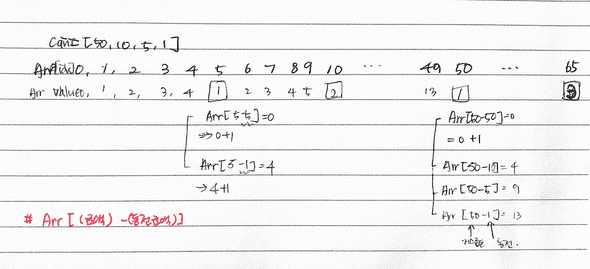 Coin = [50, 10, 5, 1]
Arr idx 0, 1, 2 3 4 5 6 7 8 9 10 ... 49 50 ... 65
Arr value 0, 1, 2, 3, 4 1 2 3 4 5 2 13 1 3
Arr[5-5] = 0
⇒ 0+1
Arr[5-1] = 4
→ 4+1
Arr[50-50] = 0
= 0+1
Arr[50-10] = 4
Arr[50-5] = 9
Arr [50-1] = 13
거스름돈 동전.
# Arr [(금액) - (동전금액)]